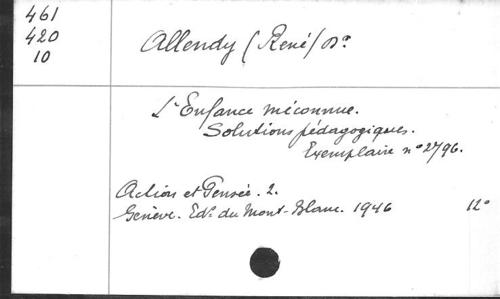 461
420
10
Allendy (René) Dr
L'Enfance méconnue.
Solutions pédagogiques.
Exemplaire n° 2796.
Action et Pensée. 2.
Genève. Edn du Mont-Blanc. 1946 12°